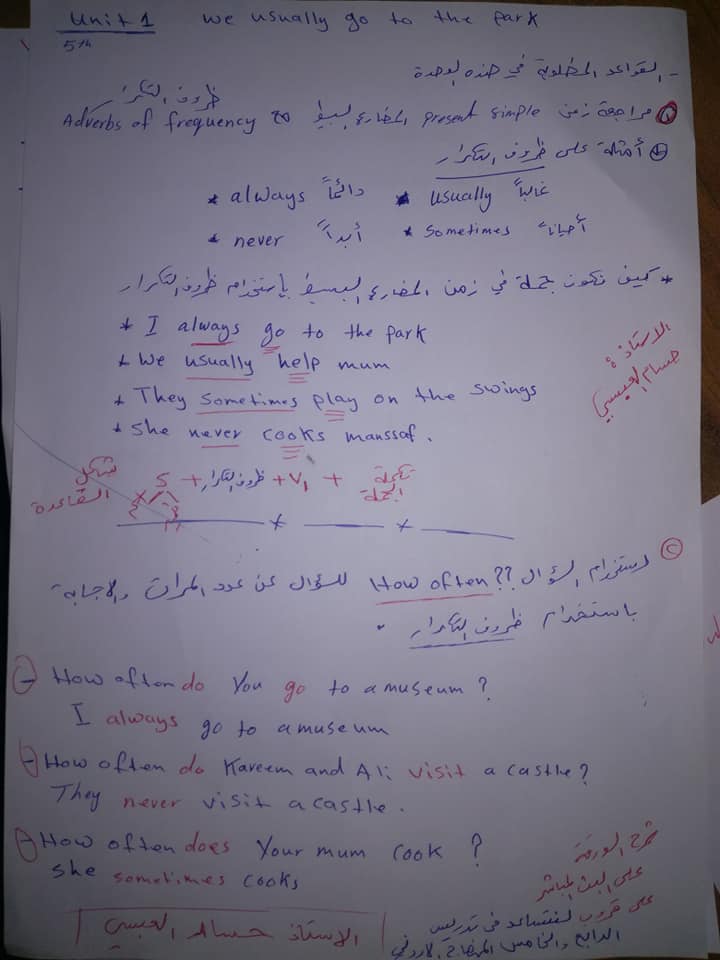 Unit 1 we usually go to the park
5th
- القواعد المطلوبة في هذه الوحدة
ظروف التكرار
① مراجعة زمن المضارع البسيط present simple Adverbs of frequency
أمثلة على ظروف التكرار
* always دائماً * usually غالباً
* never أبداً * Sometimes أحياناً
* كيف نكون جملة في زمن المضارع البسيط بإستخدام ظروف التكرار
* I always go to the park
* We usually help mum
* They sometimes play on the swings
* she never cooks manssaf.
الاستاذ
حسام العبسي
شكل القاعدة
S + ظروف التكرار + V1 + تكملة الجملة
② استخدام السؤال How often?? للسؤال عن عدد المرات والاجابة
باستخدام ظروف التكرار.
- How often do You go to a museum?
I always go to a museum
- How often do Kareem and Ali visit a castle?
They never visit a castle.
- How often does Your mum cook?
she sometimes cooks
شرح الورقة
على البث المباشر
على قروب لنتساعد في تدريس
الرابع والخامس المنهاج الاردني
الاستاذ حسام العبسي